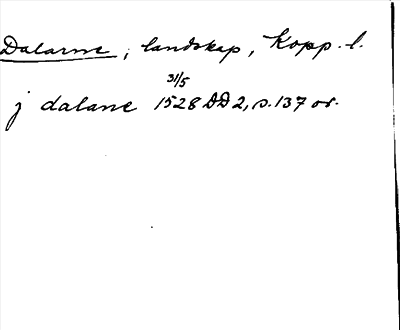 Dalarne, landskap, Kopp. l.
31/5
j dalane 1528 DD 2, s. 137 or.